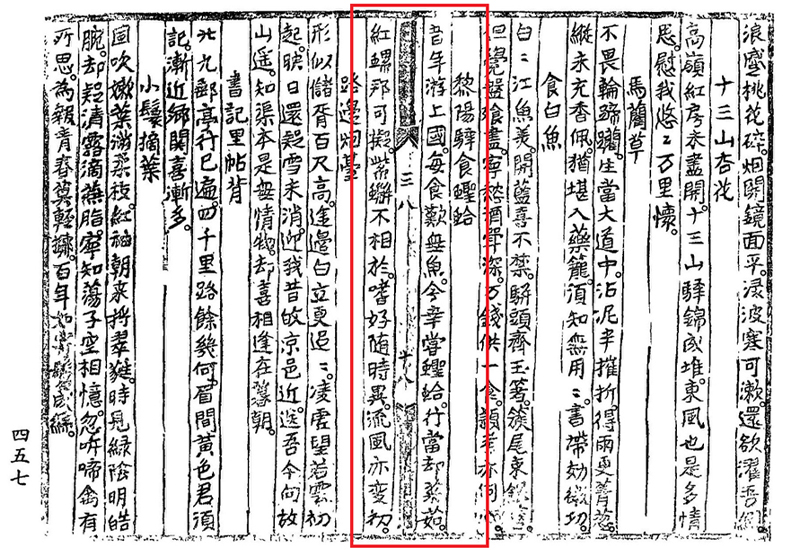 浪壓桃花碎。烟開鏡面平。渌波寒可漱。還欲濯吾纓。
十三山杏花
高嶺紅房未盡開。十三山驛錦成堆。東風也是多情
思。慰我悠〻万里懷。
馬藺草
不畏輪蹄躪。生當大道中。沾泥半摧折。得雨更菁葱。
縱未充香佩。猶堪入藥籠。須知無用〻。書帶効微功。
食白魚
白〻江魚美。開籃喜不禁。駢頭齊玉箸。簇尾束銀
但覺盤飧盡。寧愁酒深。万錢供一食。
黎陽驛食蟶蛤
昔年游上國。每食歎無魚。今幸嘗蟶蛤。行當却菜茹。
三八 廿八
紅螺那可擬。紫蟹不相於。嗜好随時異。流風亦變初。
路邊烟臺
形似儲胥百尺高。逵邊白立更迢〻。凌虛望若雲初
起。映日還疑雪未消。迎我昔故京邑近。送吾今向故
山遥。知渠本是無情物。却喜相逢在聖朝。
書記里帖背
北九郵亭行已遍。四千里路餘幾何。眉間黃色君須
記。漸近鄉關喜漸多。
小鬟摘葉
因吹嫩葉柔枝。紅袖朝来捋翠。時見綠陰明皓
腕。却疑清露滴燕脂。寧知蕩子空相憶。忽吁啼禽有
所思。為報青春莫輕擲。百年如成絲。
四五七